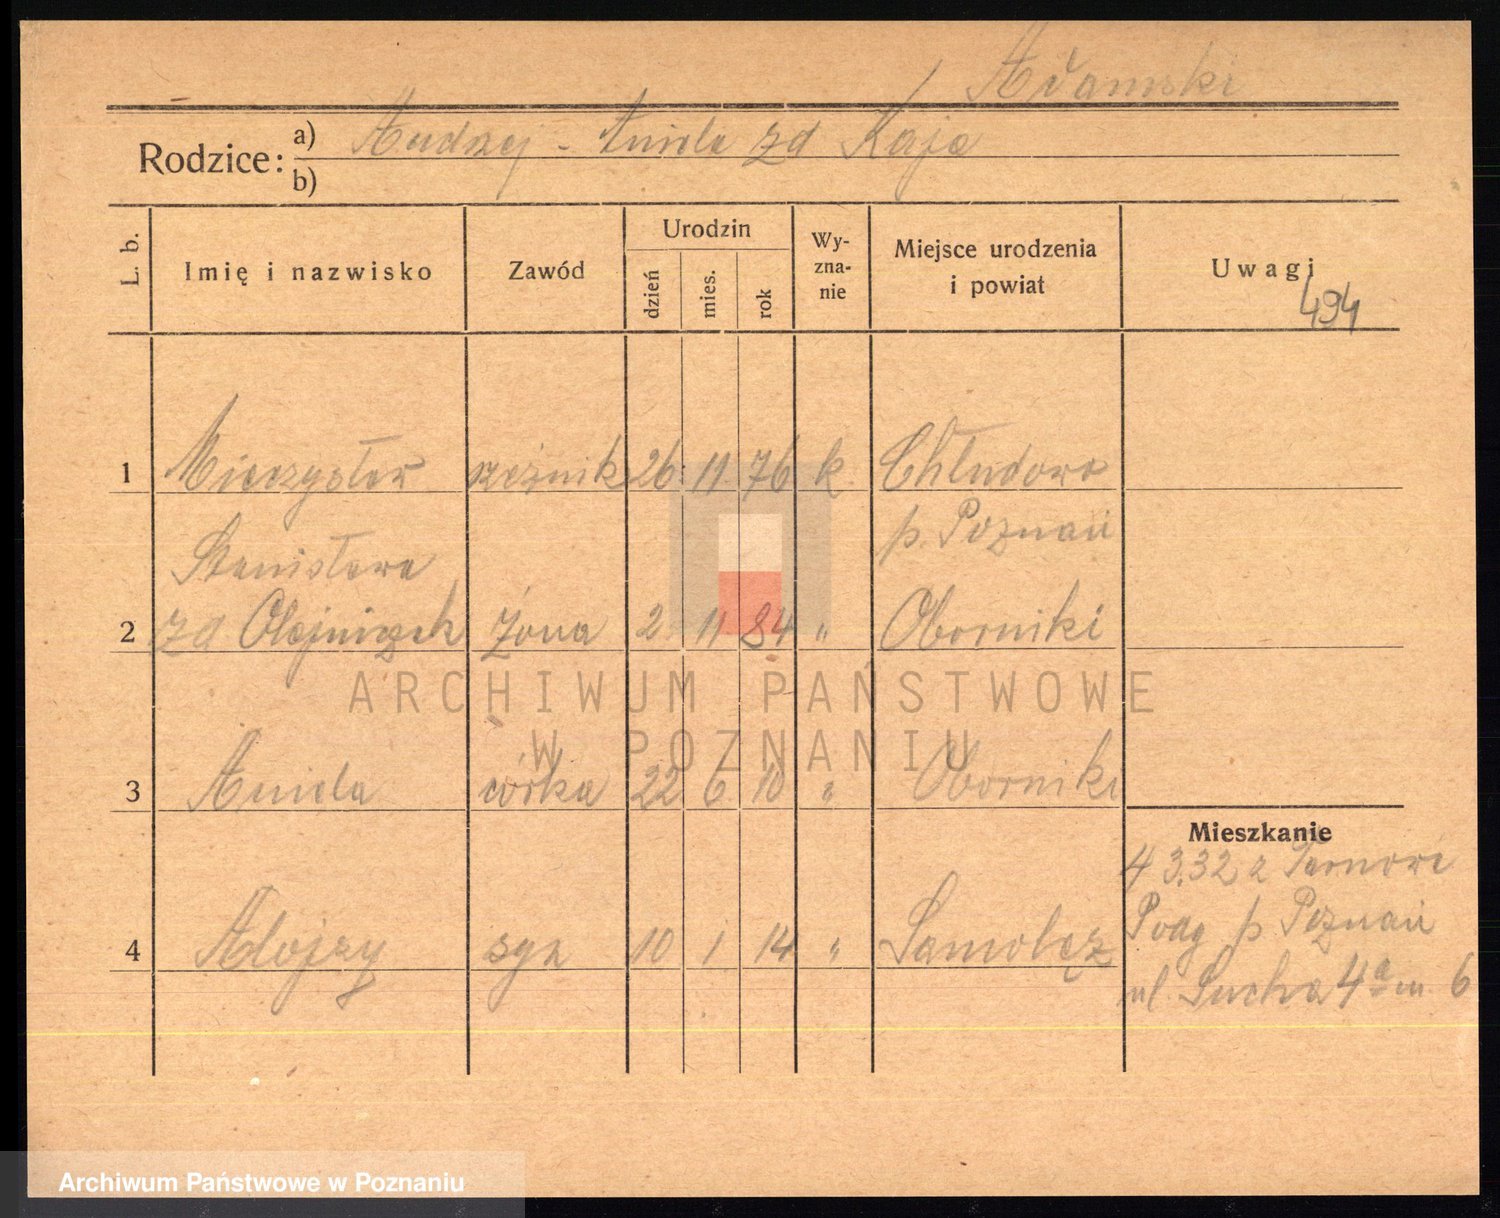 Adamski
Rodzice: a) Andrzej - Aniela zd Kaja
b)
L. b. Imię i nazwisko Zawód Urodzin dzień mies. rok Wy-zna-nie Miejsce urodzenia i powiat Uwagi
494
1 Mieczysław rzeźnik 26 11 76 k Chłudowo
p. Poznań
Stanisława
2 zd Olejniczak żona 2 11 84 " Oborniki
ARCHIWUM PAŃSTWOWE
W POZNANIU
3 Aniela córka 22 6 10 " Oborniki
Mieszkanie
4 3.32 z Tarnowa
Podg p Poznań
4 Alojzy syn 10 1 14 " Samołęż
ul. Sucha 4a m. 6
Archiwum Państwowe w Poznaniu